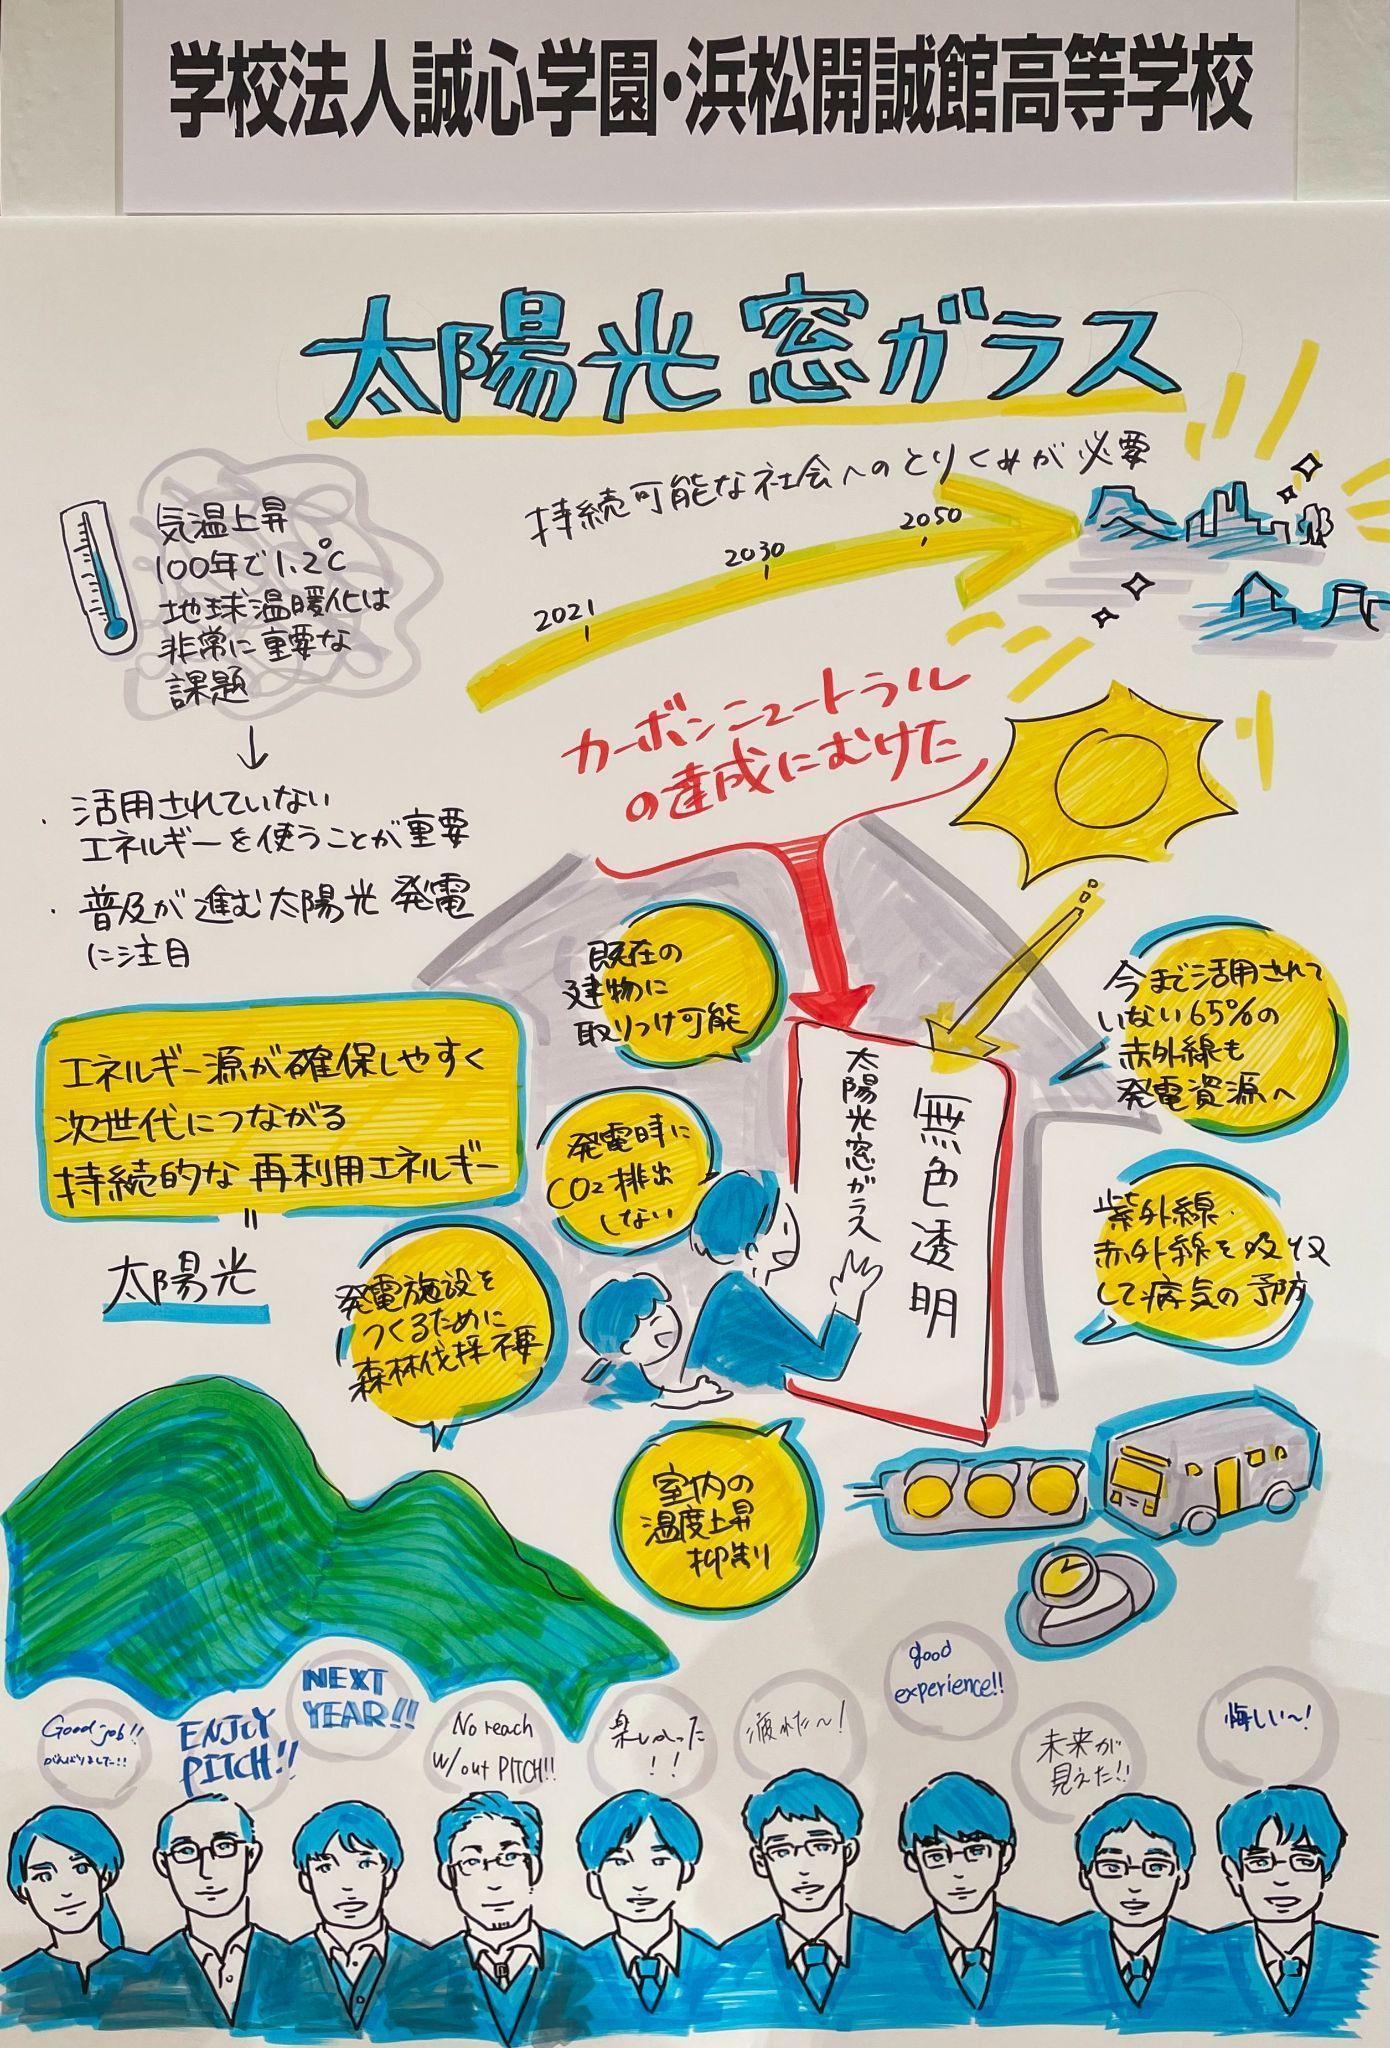 学校法人誠心学園・浜松開誠館高等学校
太陽光 窓ガラス
持続可能な社会へのとりくみが必要
2021
2030
2050
気温上昇
100年で1.2℃
地球温暖化は
非常に重要な
課題
↓
・活用されていない
エネルギーを使うことが重要
・普及が進む太陽光発電
に注目
エネルギー源が確保しやすく
次世代につながる
持続的な再利用エネルギー
=
太陽光
カーボンニュートラル
の達成にむけた
既在の
建物に
取りつけ可能
発電時に
CO2排出
しない
発電施設を
つくるために
森林伐採不要
室内の
温度上昇
抑制
無色透明
太陽光窓ガラス
今まで活用されて
いない65%の
赤外線も
発電資源へ
紫外線・
赤外線を吸収
して病気の予防
Good job!!
がんばりました!!
ENJOY
PITCH!!
NEXT
YEAR!!
No reach
w/out PITCH!!
楽しかった
!!
疲れた〜!
good
experience!!
未来が
見えた!!
悔しい〜!